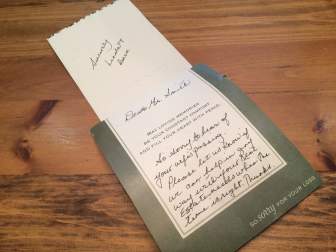 Sincerely
Linda &
Dave
Dear Mr. Smith
MAY LOVING MEMORIES
BE YOUR CONSTANT COMFORT
AND FILL YOUR HEART WITH PEACE.
So sorry to hear of
your wife's passing.
Please let us know if
we can help in any
way with your Real
Estate needs when the
time is right. Thanks
SO sorry FOR YOUR LOSS